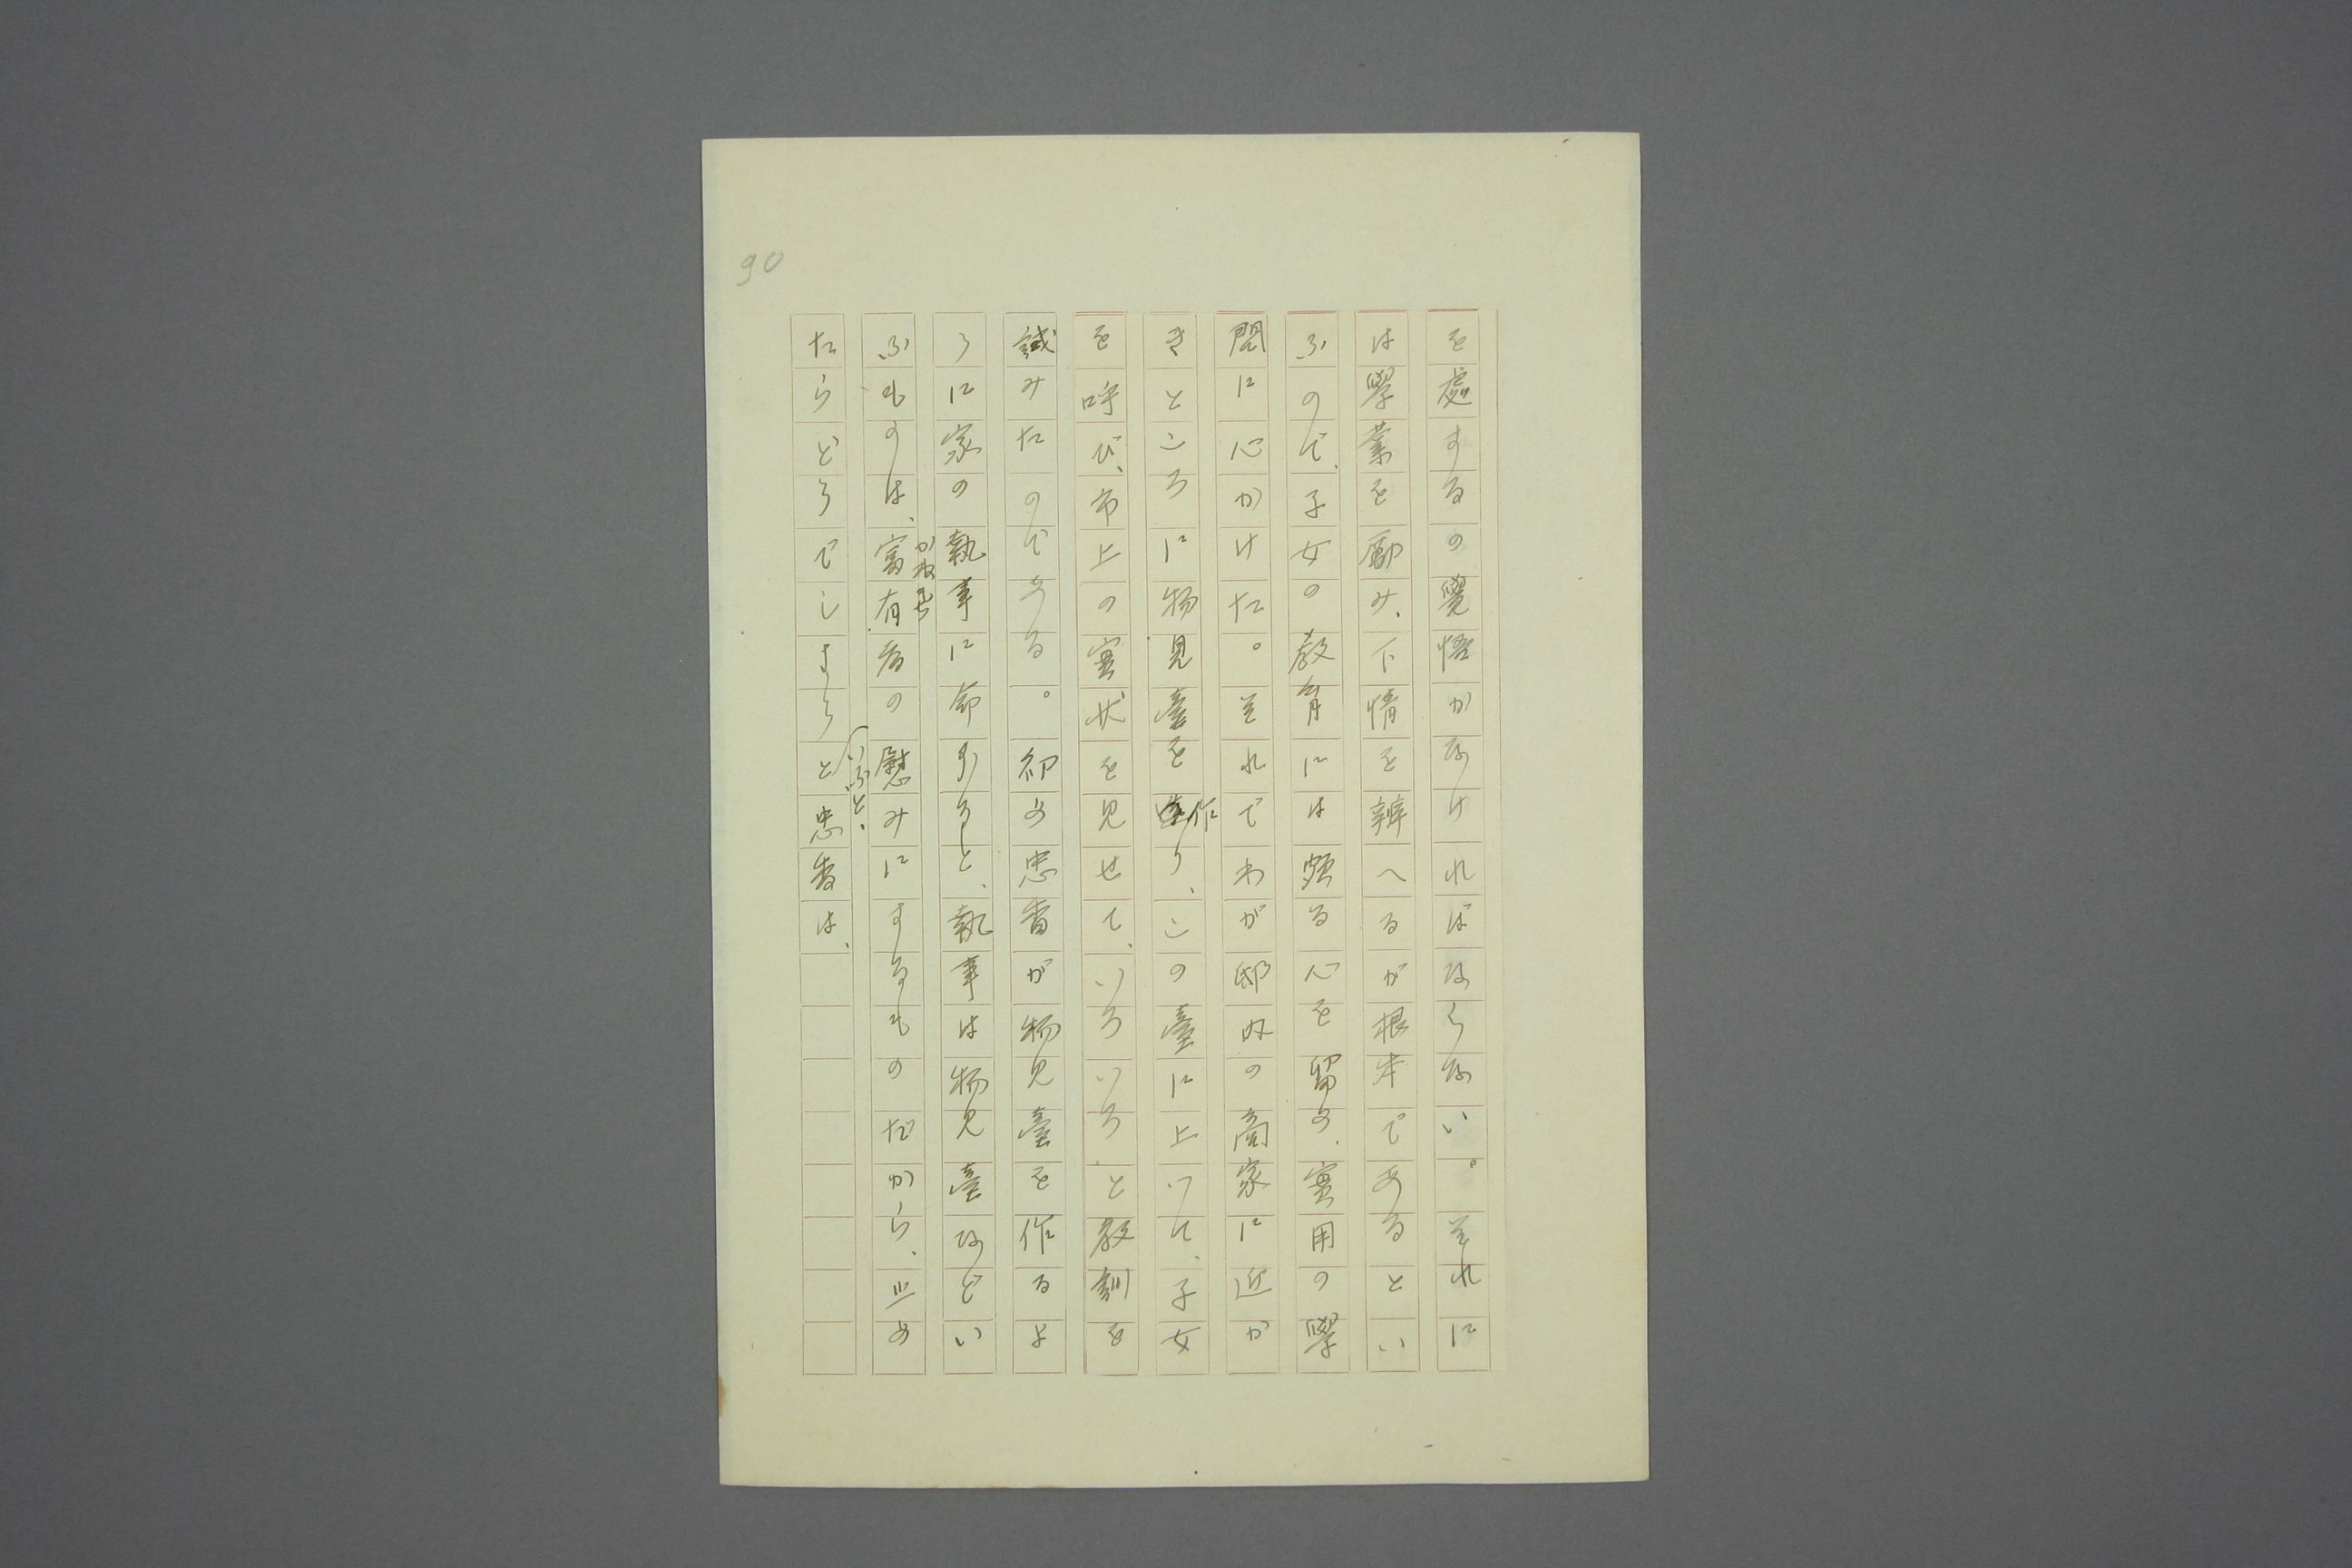 90
を處するの覺悟がなければならない。それに
は學業を勵み、下情を辨へるが根本であるとい
ふので、子女の教育には頗る心を留め、實用の學
問に心がけた。それでわが邸内の商家に近か
きところに物見臺を作り、この臺に上つて、子女
を呼び、市上の實状を見せて、いろいろと教訓を
試みたのである。初め忠香が物見臺を作るよ
うに家の執事に命ずると、執事は物見臺などい
ふものは、富有者の慰みにするものだから、止め
かねもち
たらどうでしようといふと、忠香は、